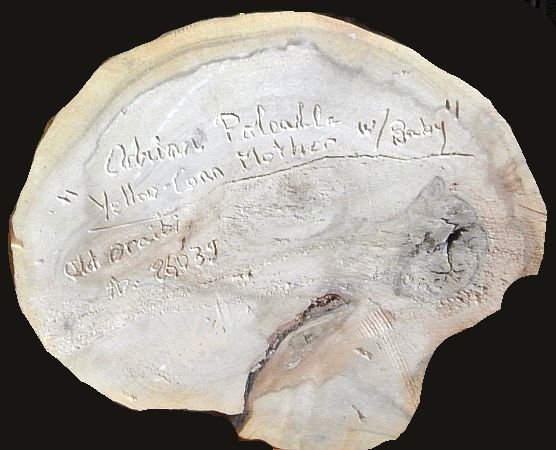 Adrian Poleahla
"Yellow Corn Mother w/ Baby"
Old Oraibi